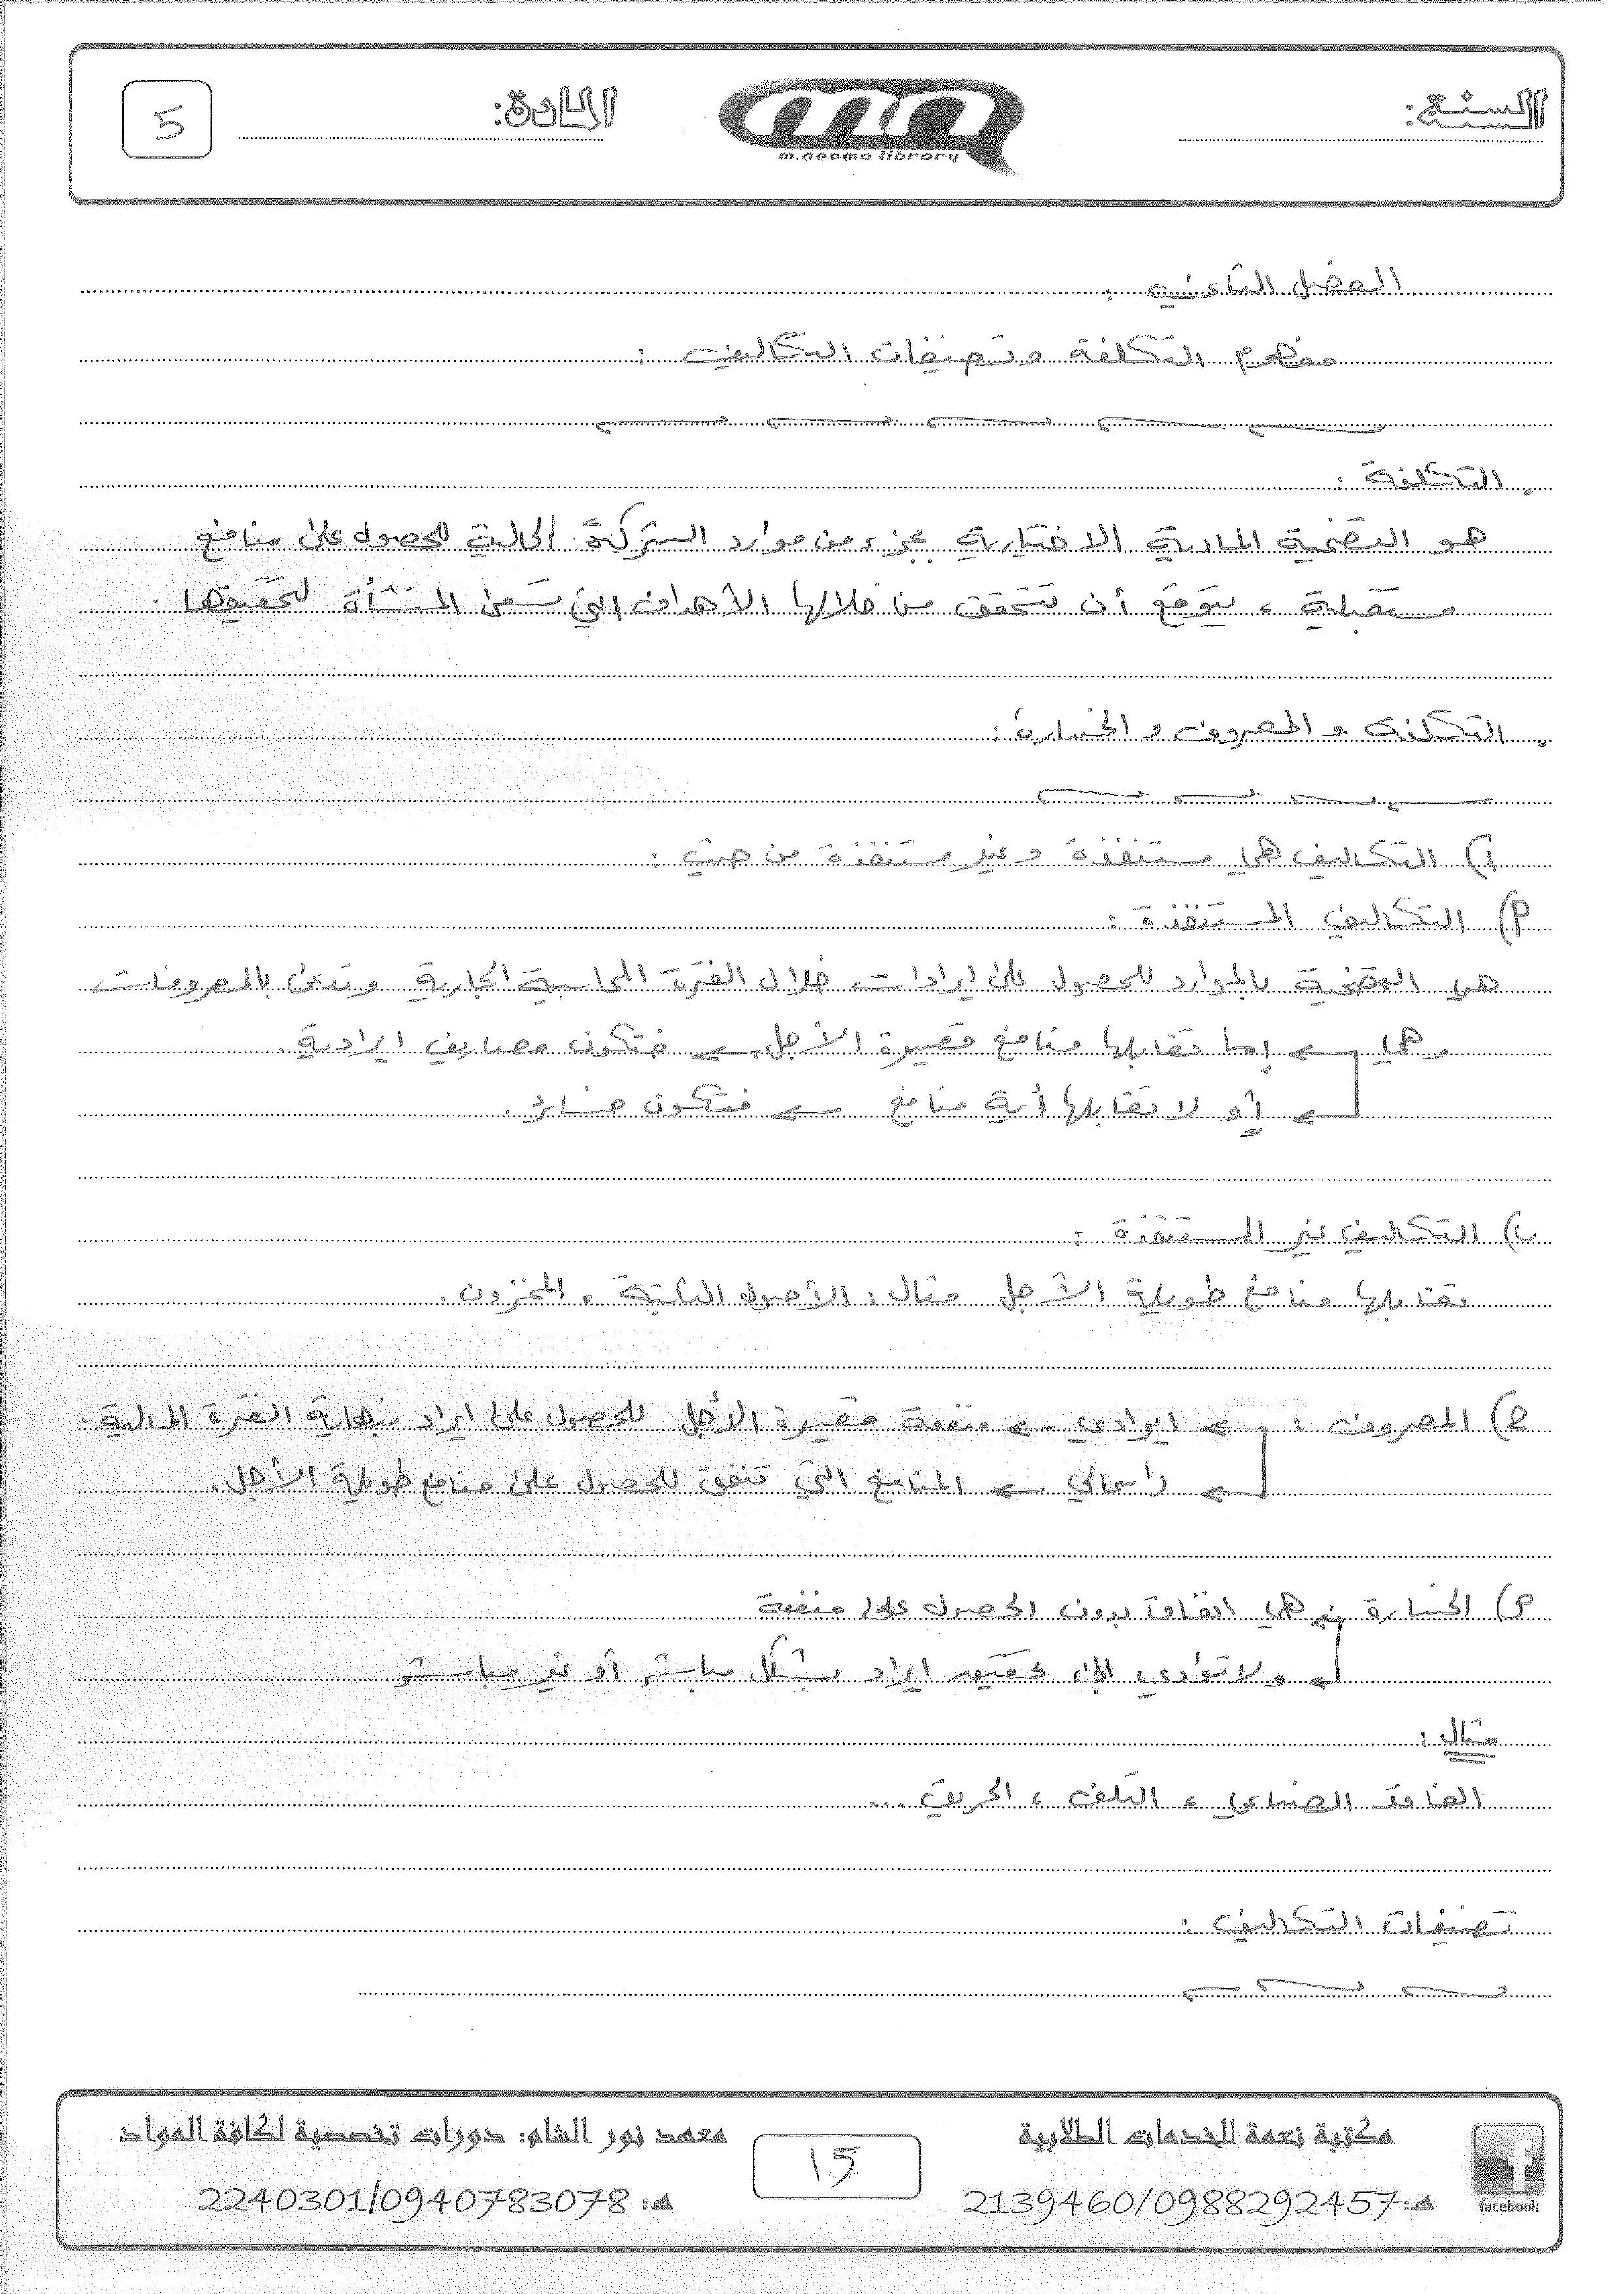 السنة:
m.neoma library
المادة:
5
الفصل الثاني :
مفهوم التكلفة وتصنيفات التكاليف :
. التكلفة :
هو التضحية المادية الاختيارية بجزء من موارد الشركة الحالية للحصول على منافع
مستقبلية ، يتوقع أن تتحقق من خلالها الأهداف التي تسعى المنشأة لتحقيقها .
. التكلفة و المصروف و الخسارة :
1) التكاليف هي مستنفذة و غير مستنفذة من حيث :
P) التكاليف المستنفذة :
هي التضحية بالموارد للحصول على ايرادات خلال الفترة المحاسبية الجارية وتدعى بالمصروفات
وهي ← إما تقابلها منافع قصيرة الأجل ← فتكون مصاريف ايرادية .
← أو لا تقابلها أية منافع ← فتكون خسائر .
ب) التكاليف غير المستنفذة :
تقابلها منافع طويلة الأجل مثال : الأصول الثابتة . المخزون .
2) المصروف : ← ايرادي ← منفعة قصيرة الأجل للحصول على ايراد بنهاية الفترة المالية .
← راسمالي ← المنافع التي تنفق للحصول على منافع طويلة الأجل .
3) الخسارة ← هي انفاق بدون الحصول على منفعة
← ولا تؤدي الى تحقيق ايراد بشكل مباشر أو غير مباشر
مثال :
الفاقد الصناعي ، التلف ، الحريق ...
تصنيفات التكاليف :
مكتبة نعمة للخدمات الطلابية
هـ: 2139460/0988292457
facebook
15
معهد نور الشام: دورات تخصصية لكافة المواد
هـ: 2240301/0940783078